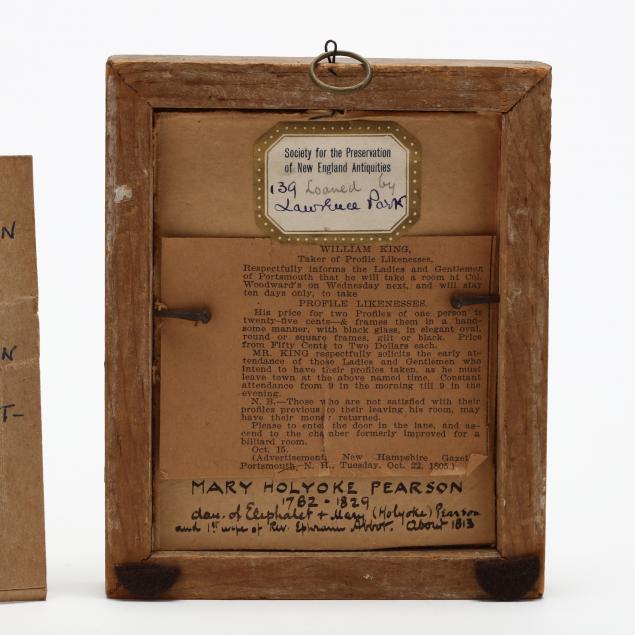 N
N
T-
Society for the Preservation
of New England Antiquities
139 Loaned by
Lawrence Park
WILLIAM KING,
Taker of Profile Likenesses,
Respectfully informs the Ladies and Gentlemen
of Portsmouth that he will take a room at Col.
Woodward's on Wednesday next, and will stay
ten days only, to take
PROFILE LIKENESSES.
His price for two Profiles of one person is
twenty-five cents—& frames them in a hand-
some manner, with black glass, in elegant oval,
round or square frames, gilt or black. Price
from Fifty Cents to Two Dollars each.
MR. KING respectfully solicits the early at-
tendance of those Ladies and Gentlemen who
intend to have their profiles taken, as he must
leave town at the above named time. Constant
attendance from 9 in the morning till 9 in the
evening.
N. B.—Those who are not satisfied with their
profiles previous to their leaving his room, may
have their money returned.
Please to enter the door in the lane, and as-
cend to the chamber formerly improved for a
billiard room.
Oct. 15.
(Advertisement, New Hampshire Gazet
Portsmouth, N. H., Tuesday, Oct. 22, 1805.)
MARY HOLYOKE PEARSON
1782 - 1829
dau. of Eliphalet & Mary (Holyoke) Pearson
and 1st wife of Rev. Ephraim Abbot. About 1813